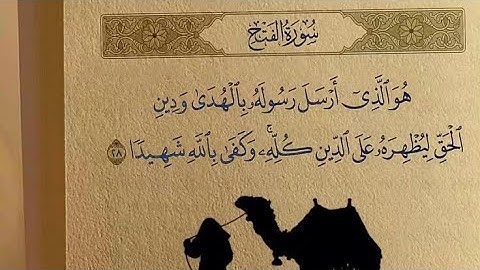 سُورَةُ الفَتْحِ
هُوَ ٱلَّذِىٓ أَرْسَلَ رَسُولَهُۥ بِٱلْهُدَىٰ وَدِينِ
ٱلْحَقِّ لِيُظْهِرَهُۥ عَلَى ٱلدِّينِ كُلِّهِۦ ۚ وَكَفَىٰ بِٱللَّهِ شَهِيدًا ٢٨